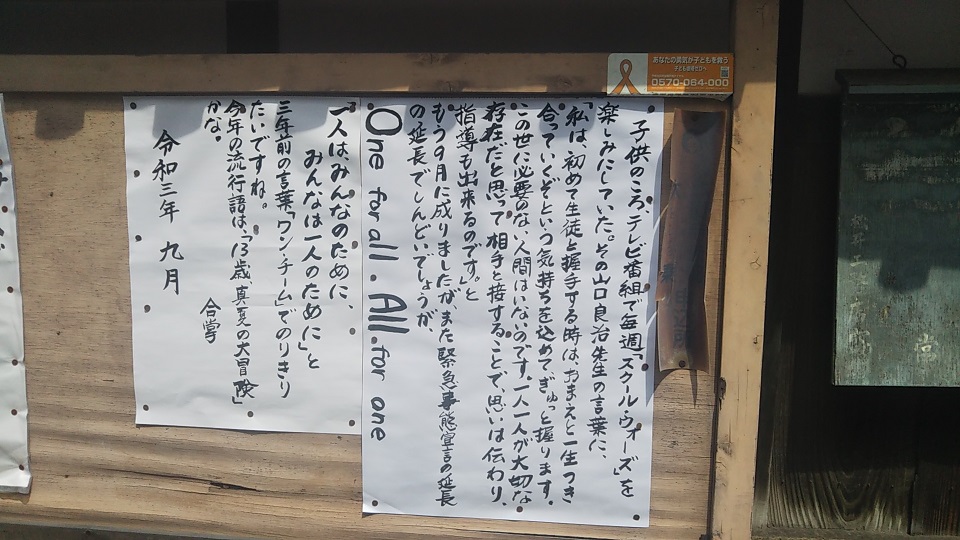 子供のころ、テレビ番組で毎週「スクール・ウォーズ」を
楽しみにしていた。その山口良治先生の言葉に、
「私は、初めて生徒と握手する時は、おまえと一生つき
合っていくぞという気持ちを込めて、ぎゅっと握ります。
この世に必要のない人間はいないのです。一人一人が大切な
存在だと思って相手と接することで、思いは伝わり、
指導も出来るのです。」と
もう9月に成りましたがまた緊急事態宣言の延長
の延長でしんどいでしょうが、
One for all. All for one
「一人は、みんなのために、
みんなは一人のために」と
三年前の言葉「ワン・チーム」でのりきり
たいですね。
今年の流行語は、「13歳、真夏の大冒険」
かな。
令和三年 九月
合掌
あなたの勇気が子どもを救う
0570-064-000